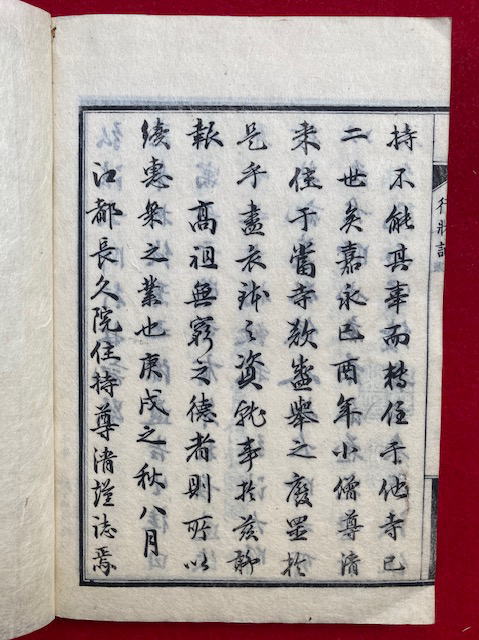 行狀記
持不能其事而轉住于他寺已
二世矣嘉永己酉年小僧尊清
来住于當寺歎盛舉之廢罷於
是乎盡衣鉢之資就事於玆聊
報高祖無窮之德者則所以
續惠果之業也庚戌之秋八月
江都長久院住持尊清謹誌焉